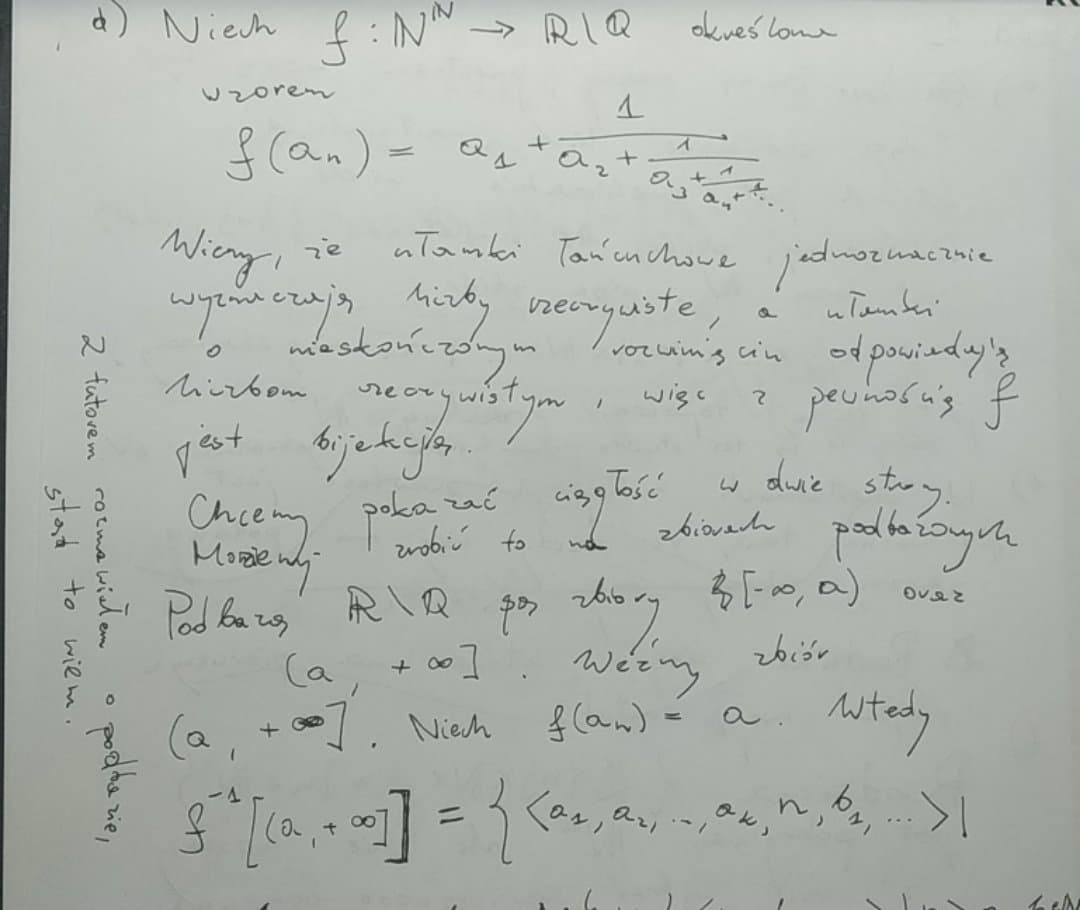 d) Niech f : ℕ^ℕ → ℝ\ℚ określone
wzorem
f(aₙ) = a₁ + 1/(a₂ + 1/(a₃ + 1/(a₄ + 1/...)))
Wiemy, że ułamki łańcuchowe jednoznacznie
wyznaczają liczby rzeczywiste, a ułamki
o nieskończonym rozwinięciu odpowiadają
liczbom rzeczywistym, więc z pewnością f
jest bijekcją.
Chcemy pokazać ciągłość w dwie strony.
Możemy zrobić to na zbiorach podbazowych
Podbazą ℝ\ℚ są zbiory [-∞, a) oraz
(a, +∞]. Weźmy zbiór
(a, +∞]. Niech f(aₙ) = a. Wtedy
f⁻¹[(a, +∞]] = {<a₁, a₂, ..., aₖ, n, b₁, ...> |
Z tutorem rozmawiałem o podbazie,
stąd to wiem.